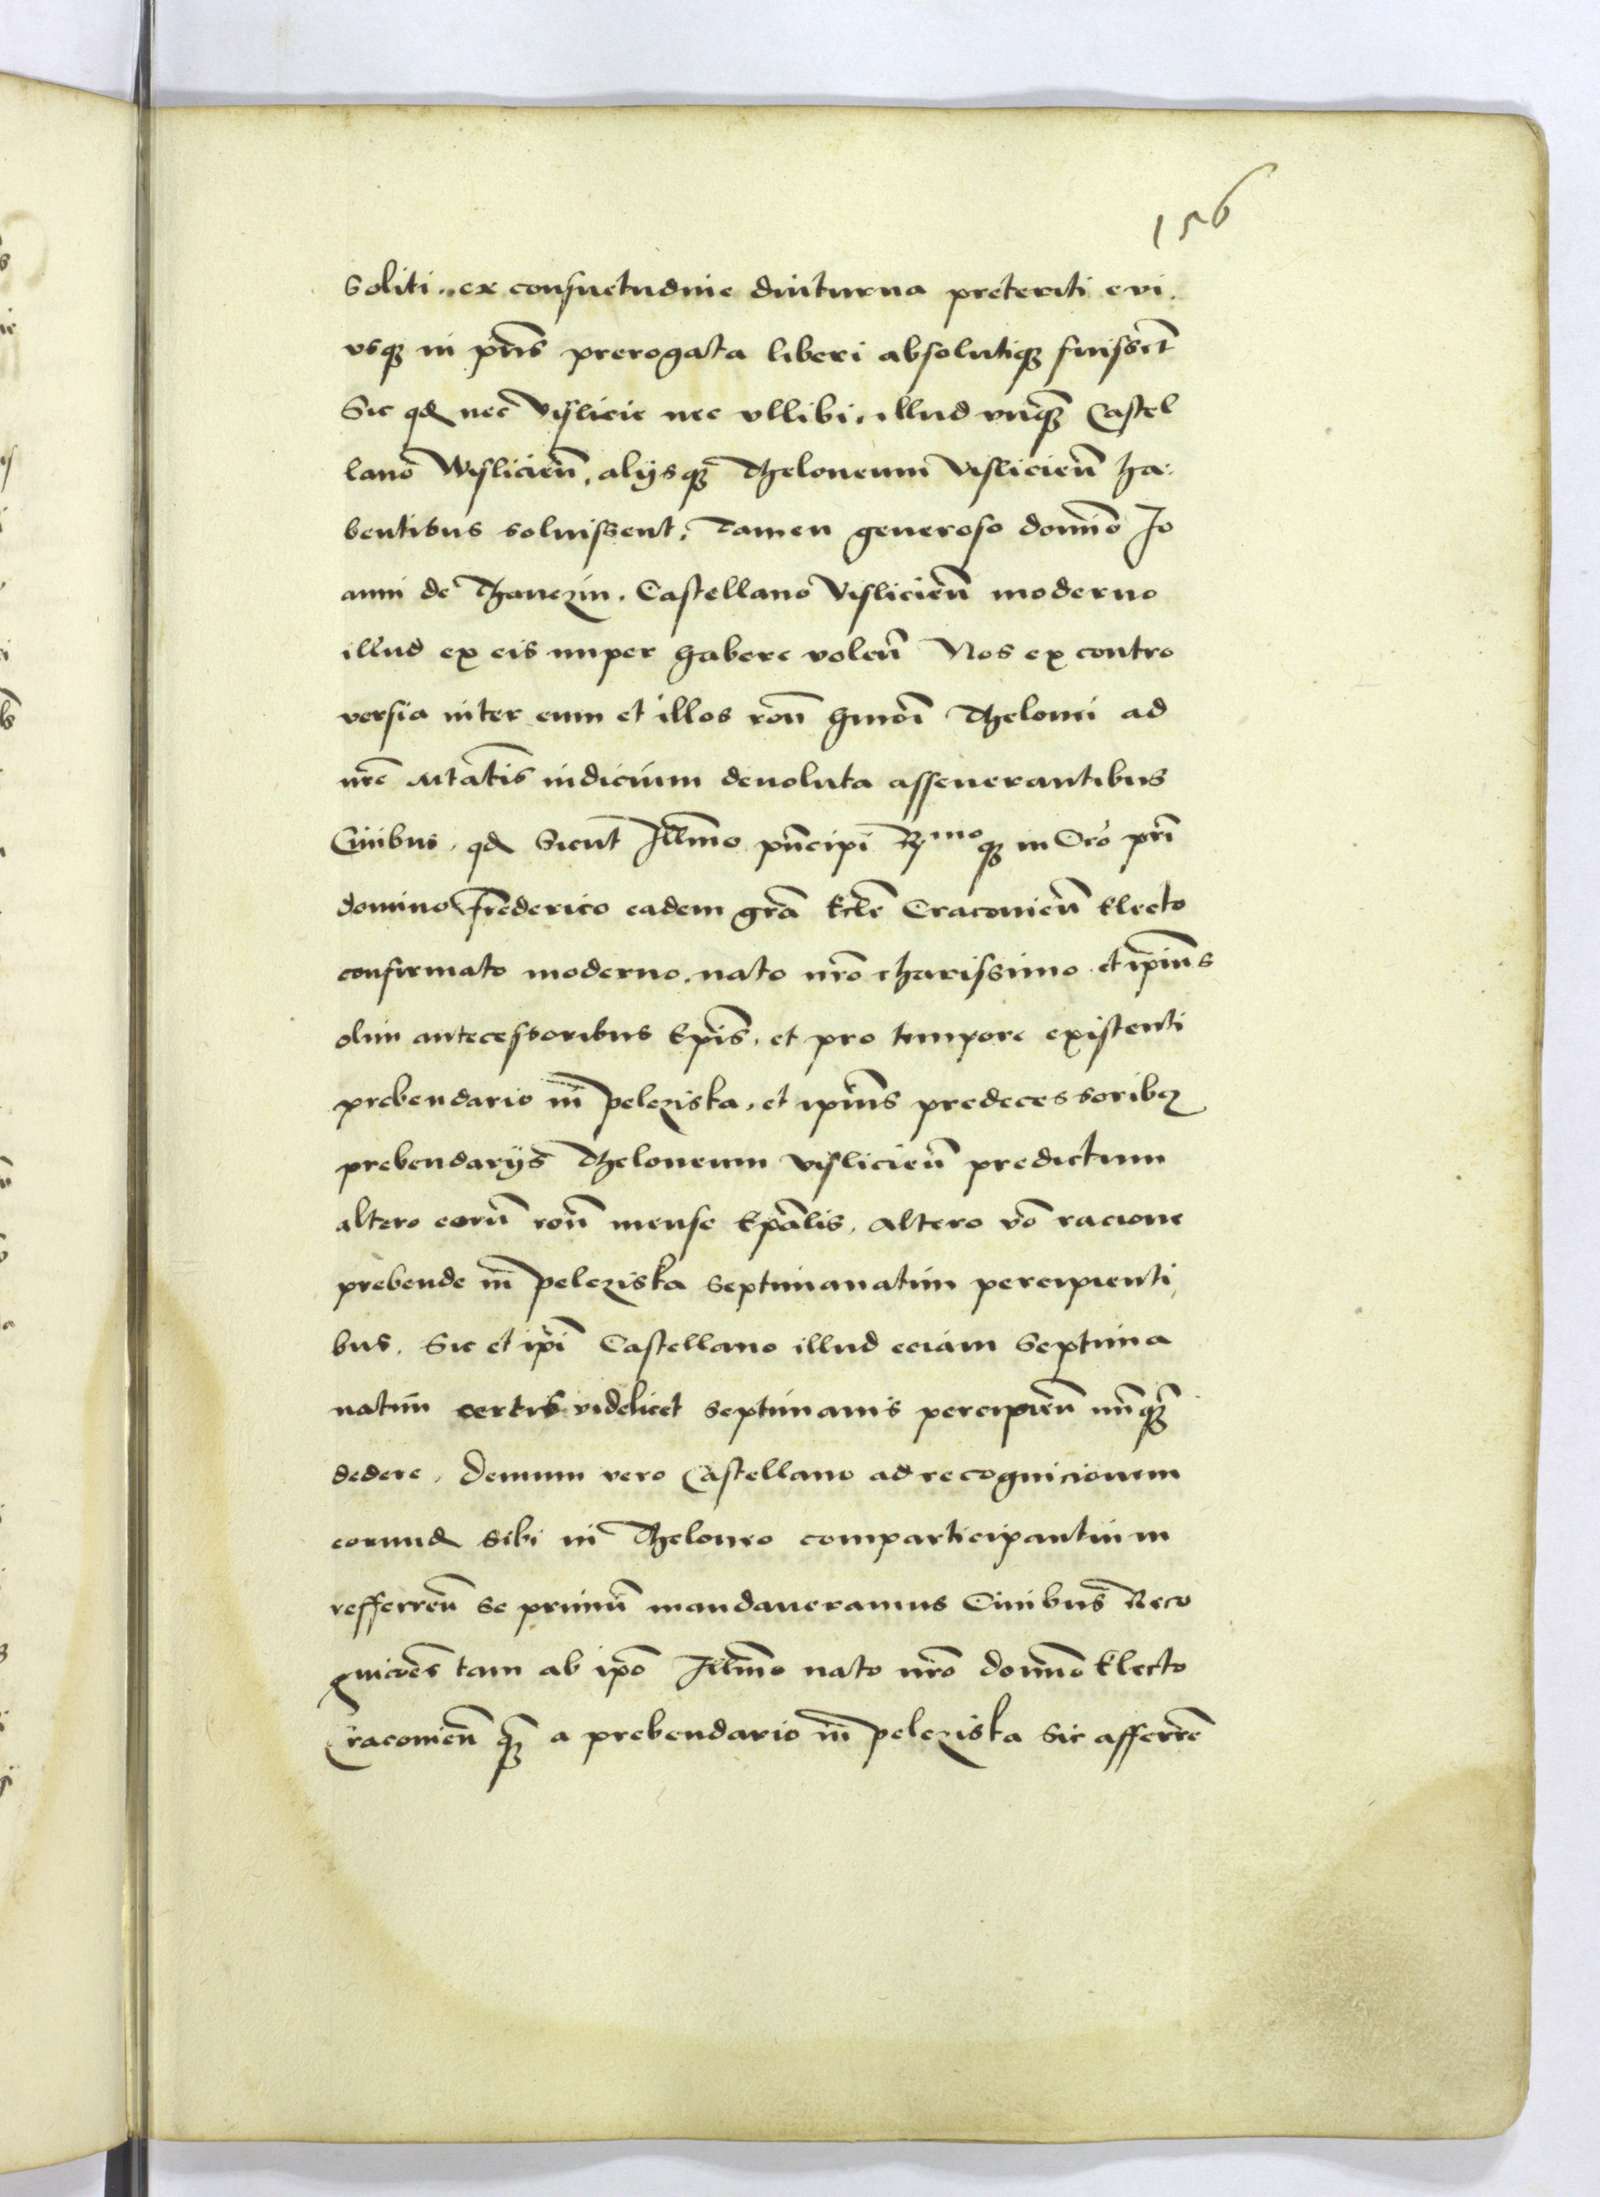 156
soliti .. ex consuetudine diuturna preteriti evi.
vsqꝫ in pn̄s prerogata liberi absolutiqꝫ fuissēt
Sic qd nec Vislicie nec vllibi. illud vnqꝫ Castel
lano Wislicien̄. alijsqꝫ Theloneum Vislicien̄ ha:
bentibus soluissent, Tamen generoso domīo Jo
anni de Thanczin. Castellano Vislicien̄ moderno
illud ex eis nuper habere volen̄ Nos ex contro
versia inter eum et illos ron̄ hmōi Thelonei ad
nr̄e Mtātis iudicium deuoluta asseuerantibus
Ciuibus. qd Sicut Illm̄o pn̄cipi Rᵐᵒqꝫ in Xr̄o pr̄i
domino Frēderico eadem gr̄a Eccl̄e Cracouien̄ Electo
confirmato moderno. nato nr̄o charissimo et ip̄ius
olim antecessoribus Ep̄is. et pro tempore existenti
prebendario in̄ Pelcziska. et ip̄ius predecessoribꝫ
prebendarijs Theloneum vislicien̄ predictum
altero eorū ron̄ mense Ep̄alis. altero vō racione
prebende in̄ Pelcziska septimanatim percipienti
bus. Sic et ip̄i Castellano illud eciam Septima
natim certis videlicet septimanis percipien̄ nūqꝫ
dedere. Demum vero Castellano ad recognicionem
eorund sibi in Theloneo comparticipantium
refferren̄ se primū mandaueramus Ciuibus Reco
gnicōēs tam ab ip̄o Illm̄o nato nr̄o domīo Electo
Cracouien̄ qꝫ a prebendario in̄ Pelcziska sic afferrē